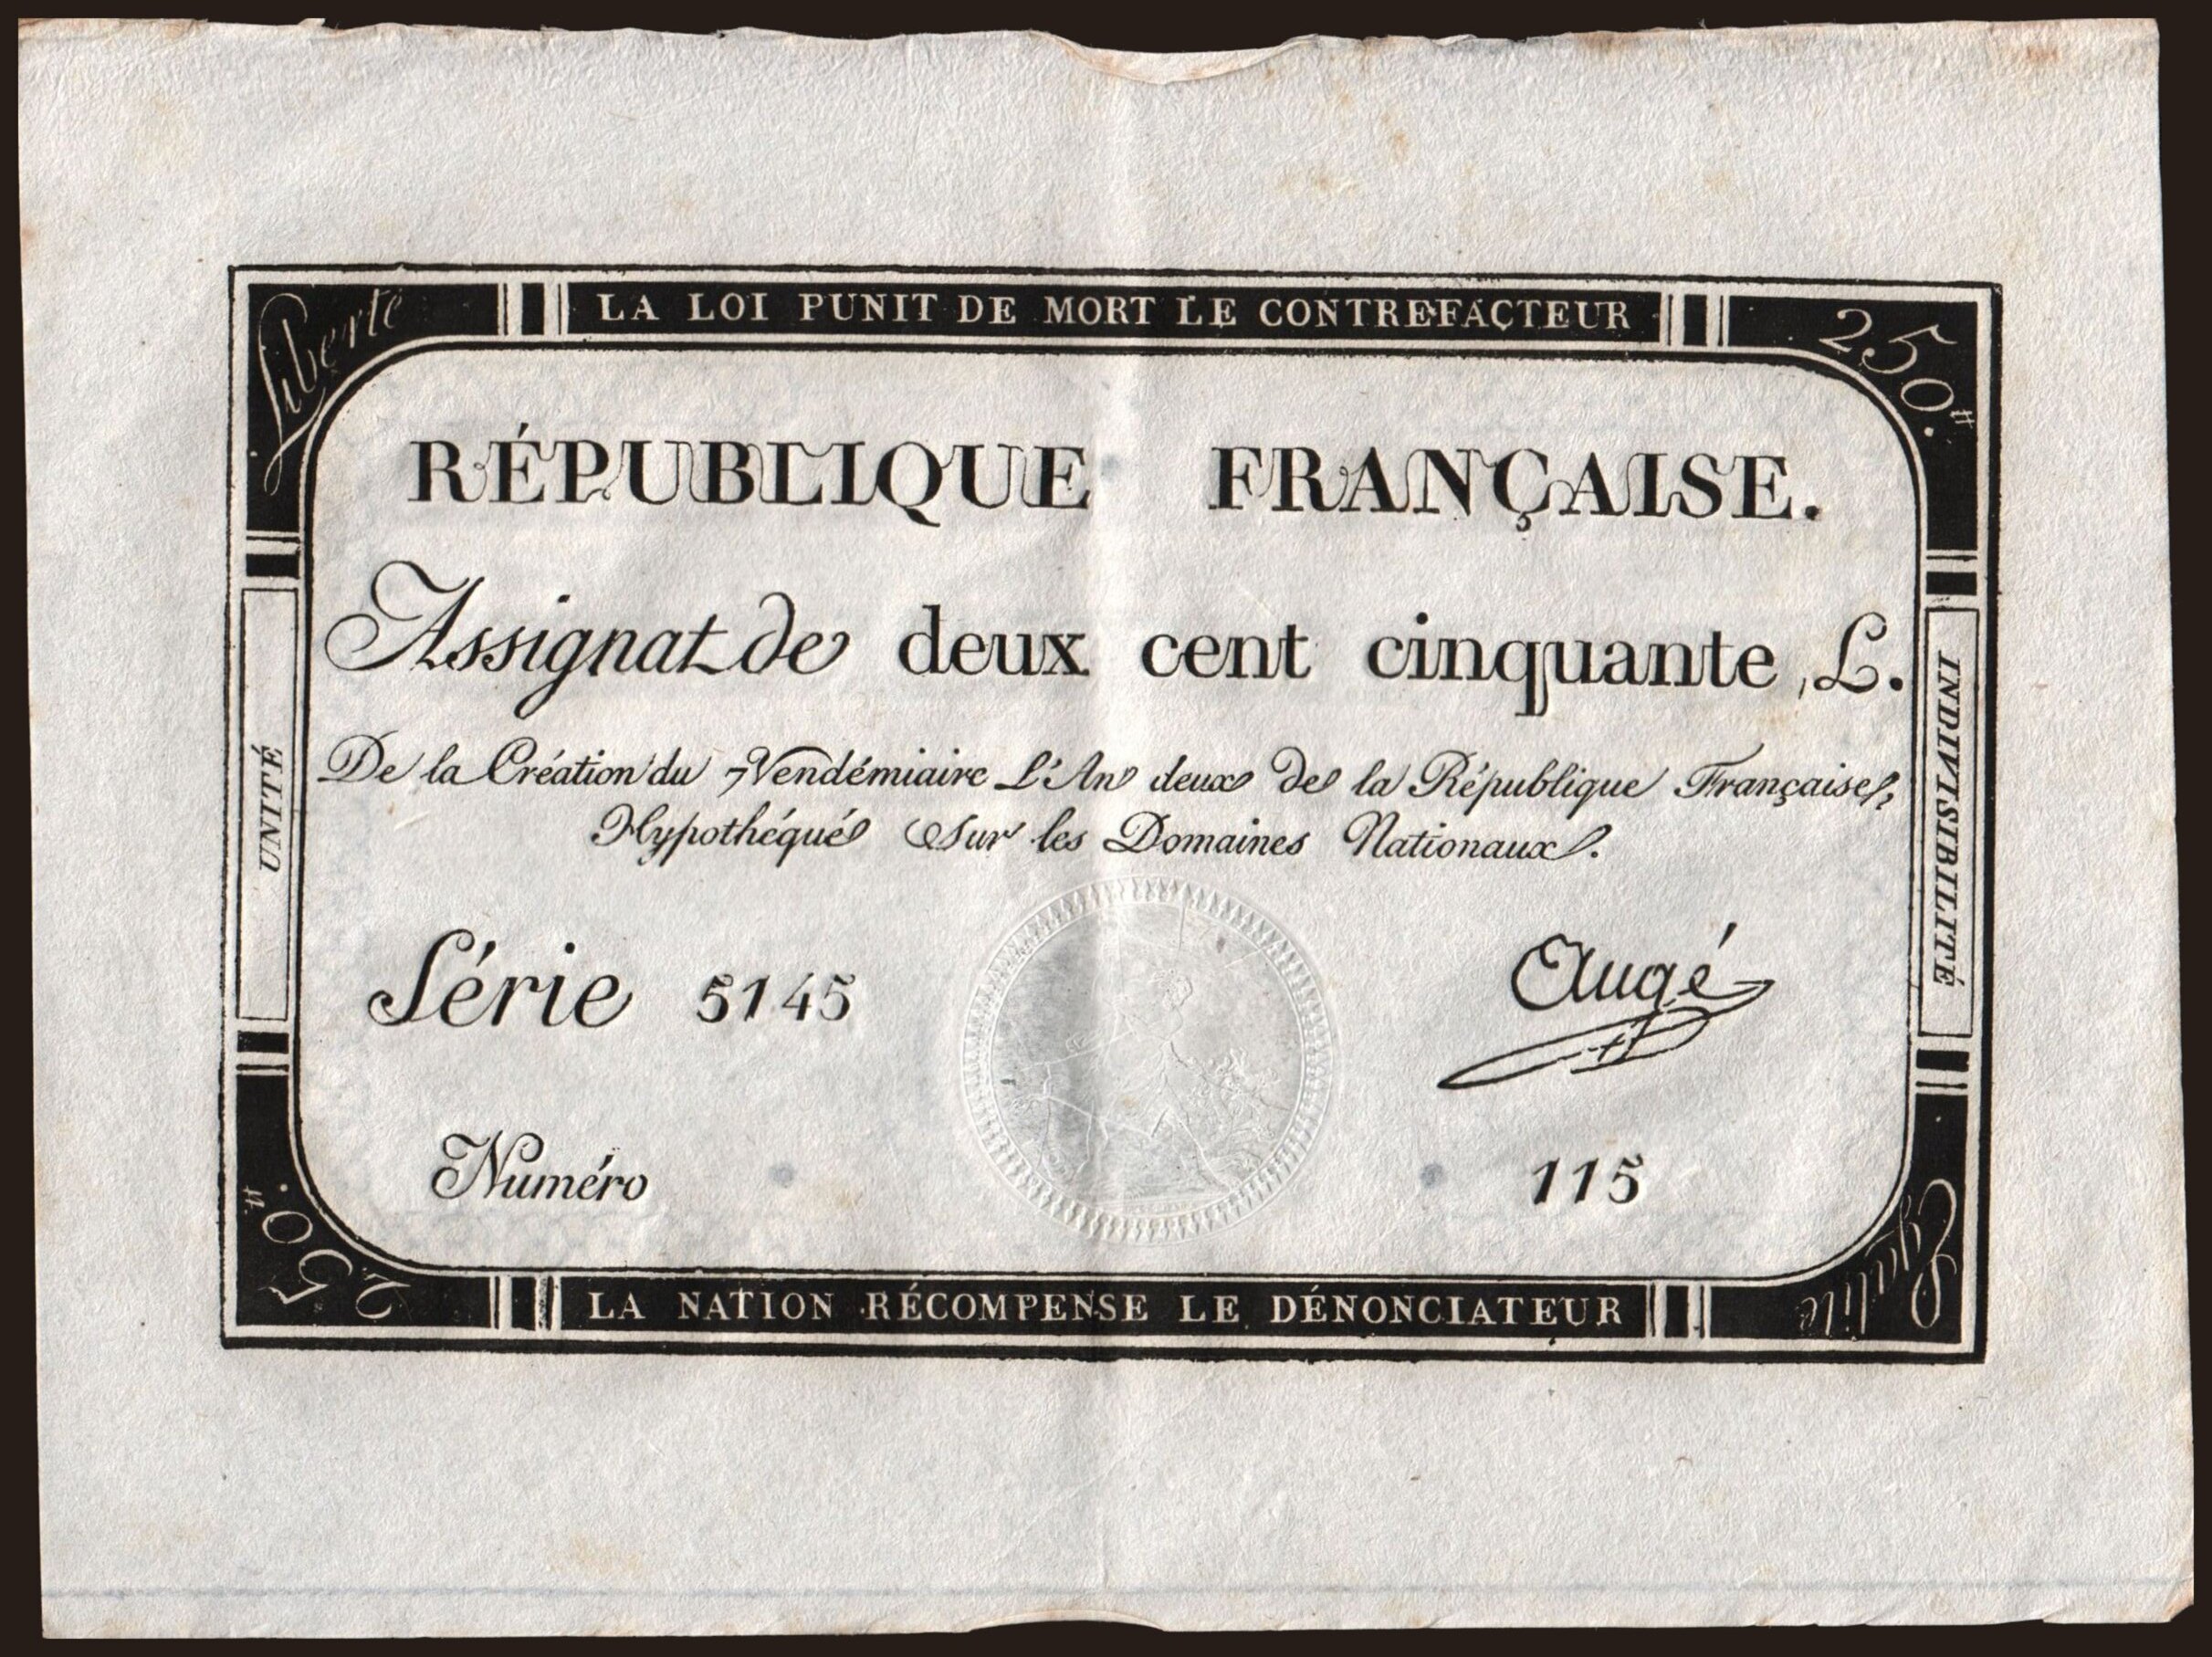 Liberté
LA LOI PUNIT DE MORT LE CONTREFACTEUR
250.ᵗᵗ
RÉPUBLIQUE FRANÇAISE.
Assignat de deux cent cinquante L.
De la Création du 7 Vendémiaire L'An deux de la République Française,
Hypothéqué Sur les Domaines Nationaux.
UNITÉ
INDIVISIBILITÉ
Série 5145
Augé
Numéro 115
250.ᵗᵗ
LA NATION RÉCOMPENSE LE DÉNONCIATEUR
Egalité